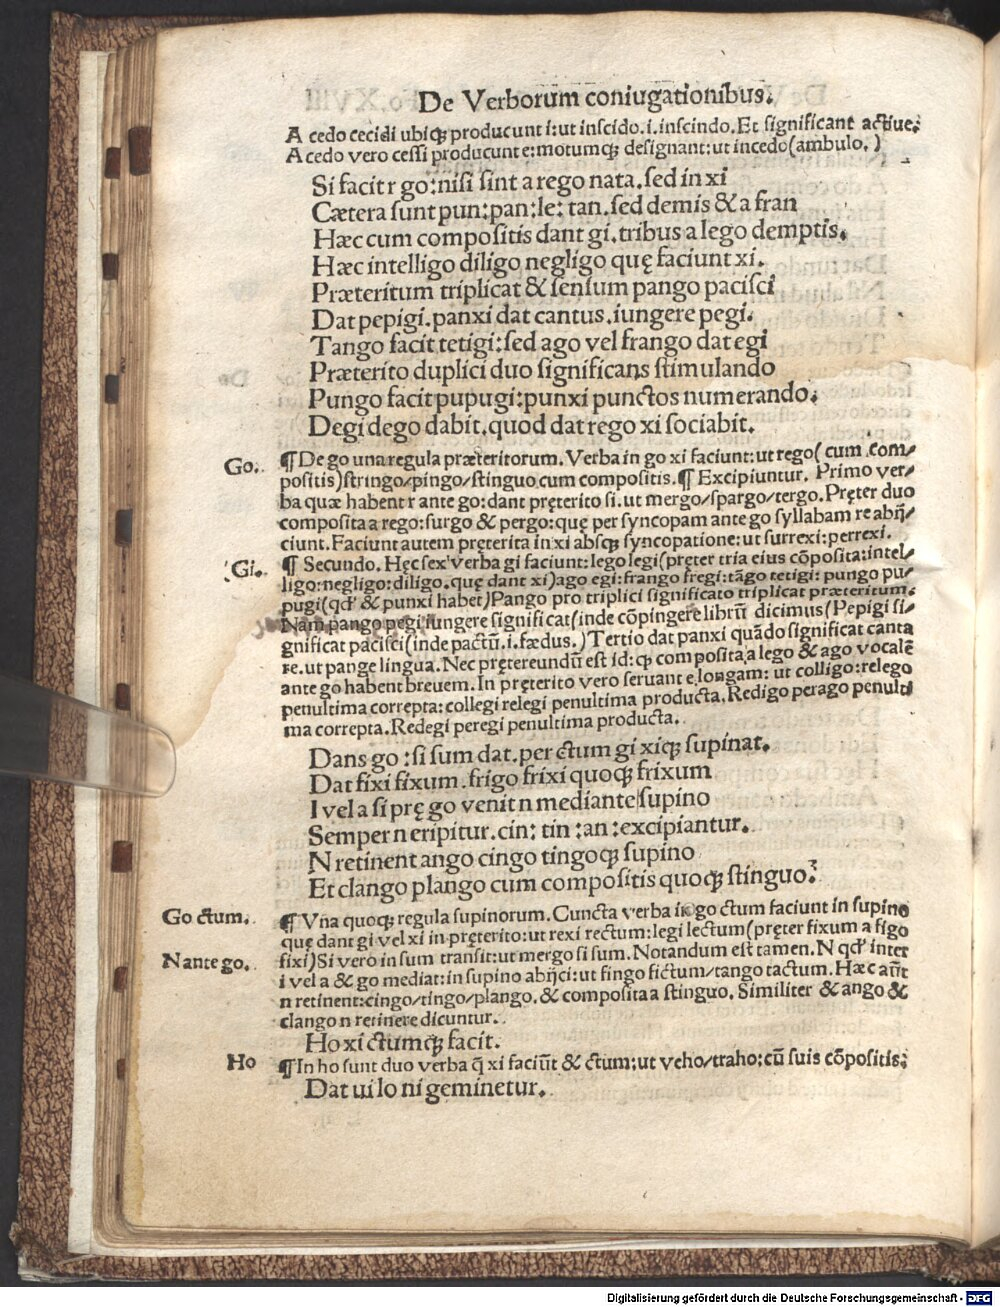 De Verborum coniugationibus.
A cedo cecidi ubiqꝫ producunt i: ut inscido .i. inscindo. Et significant actiue.
A cedo vero cessi producunt e: motumqꝫ designant: ut incedo (ambulo.)
Si facit r go: nisi sint a rego nata. sed in xi
Cætera sunt pun: pan: le: tan. sed demis & a fran
Hæc cum compositis dant gi. tribus a lego demptis.
Hæc intelligo diligo negligo quę faciunt xi.
Præteritum triplicat & sensum pango pacisci
Dat pepigi. panxi dat cantus. iungere pegi.
Tango facit tetigi: sed ago vel frango dat egi
Præterito duplici duo significans stimulando
Pungo facit pupugi: punxi punctos numerando.
Degi dego dabit. quod dat rego xi sociabit.
Go. ¶ De go una regula præteritorum. Verba in go xi faciunt: ut rego (cum com/
positis) stringo/pingo/stinguo cum compositis. ¶ Excipiuntur. Primo ver/
ba quæ habent r ante go: dant pręterito si. ut mergo/spargo/tergo. Pręter duo
composita a rego: surgo & pergo: quę per syncopam ante go syllabam re abij/
ciunt. Faciunt autem pręterita in xi absqꝫ syncopatione: ut surrexi: perrexi.
Gi. ¶ Secundo. Hęc sex verba gi faciunt: lego legi (pręter tria eius cōposita: intel/
ligo: negligo: diligo. quę dant xi) ago egi: frango fregi: tāgo tetigi: pungo pu/
pugi (qđ & punxi habet) Pango pro triplici significato triplicat præteritum.
Nam pango pegi iungere significat (inde cōpingere librū dicimus (Pepigi si/
gnificat pacisci (inde pactū .i. fædus.) Tertio dat panxi quādo significat canta
re. ut pange lingua. Nec prętereundū est id: ꝙ composita a lego & ago vocalē
ante go habent breuem. In pręterito vero seruant e longam: ut colligo: relego
penultima correpta: collegi relegi penultima producta. Redigo perago penulti
ma correpta. Redegi peregi penultima producta.
Dans go: si sum dat. per ctum gi xiqꝫ supinat.
Dat fixi fixum. frigo frixi quoqꝫ frixum
I vel a si pręgo venit n mediante supino
Semper n eripitur. cin: tin: an: excipiantur.
N retinent ango cingo tingoqꝫ supino
Et clango plango cum compositis quoqꝫ stinguo.
Go ctum. ¶ Vña quoqꝫ regula supinorum. Cuncta verba in go ctum faciunt in supino
quę dant gi vel xi in pręterito: ut rexi rectum: legi lectum (pręter fixum a figo
fixi) Si vero in sum transit: ut mergo si sum. Notandum est tamen. N qđ inter
N ante go. i vel a & go mediat: in supino abijci: ut fingo fictum/tango tactum. Hæc aūt
n retinent: cingo/tingo/plango. & composita a stinguo. Similiter & ango &
clango n retinere dicuntur.
Ho xi ctumqꝫ facit.
Ho ¶ In ho sunt duo verba q̄ xi faciūt & ctum: ut veho/traho: cū suis cōpositis.
Dat ui lo ni geminetur.
Digitalisierung gefördert durch die Deutsche Forschungsgemeinschaft - DFG